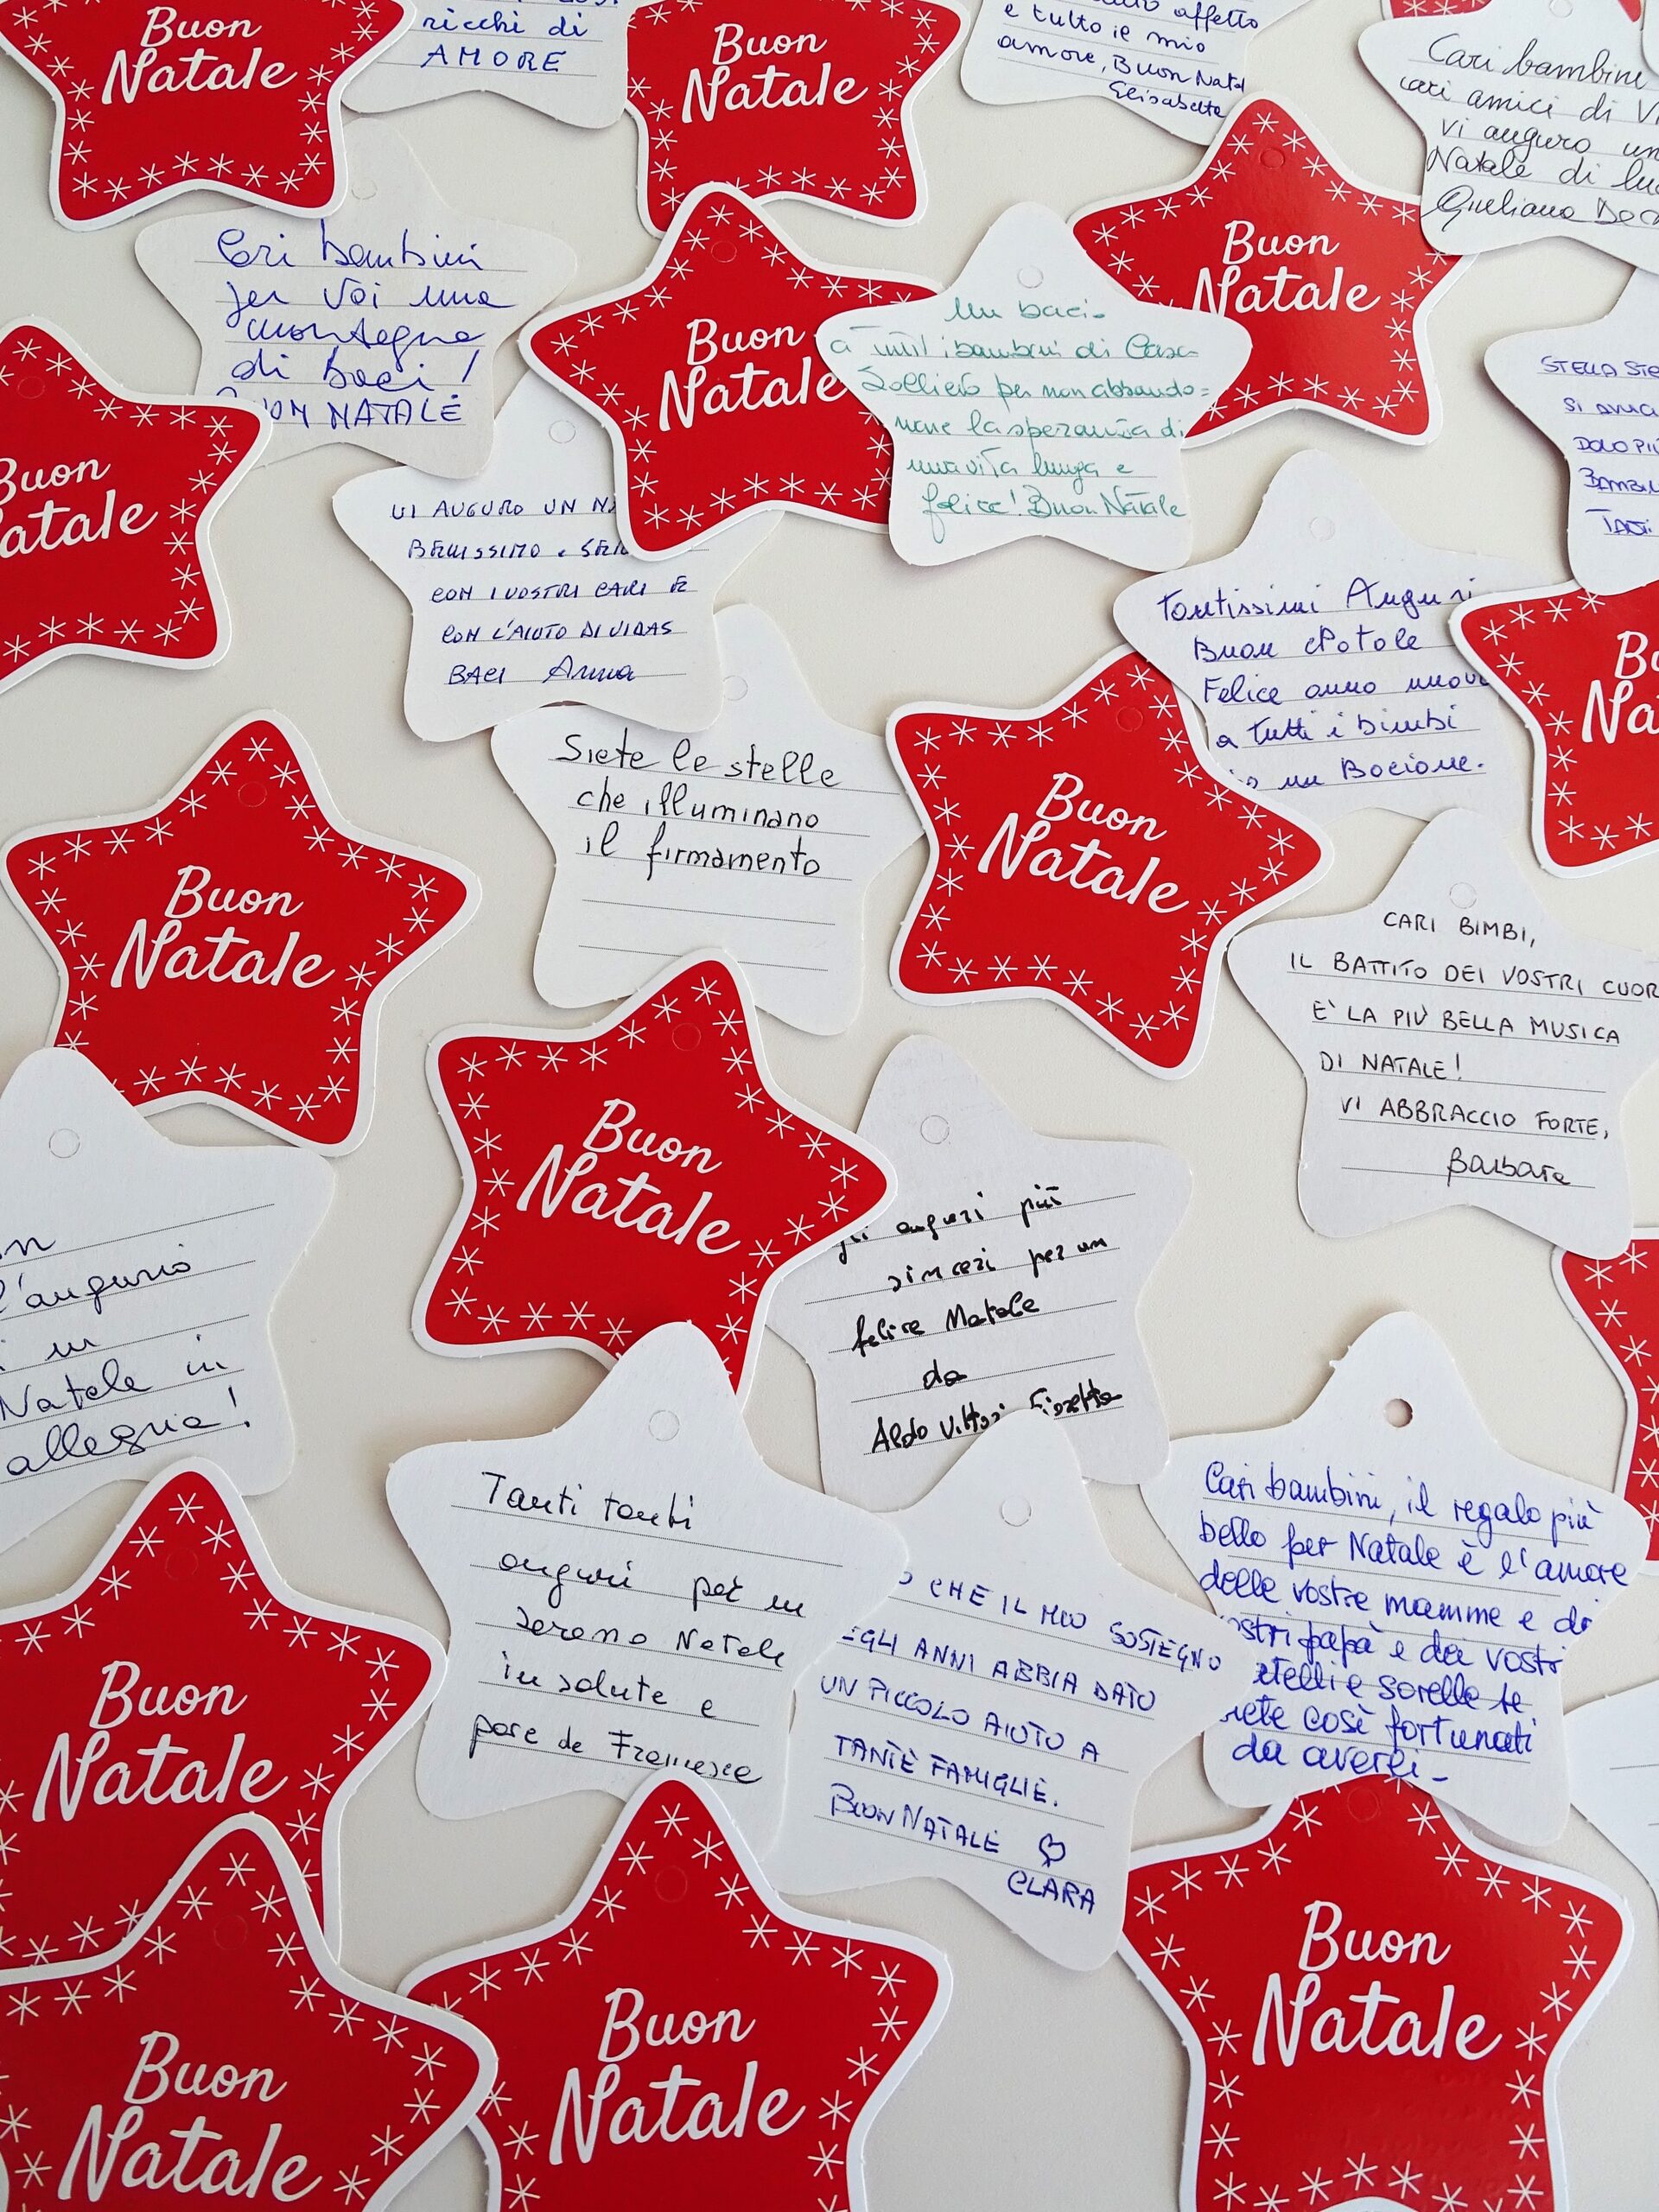 Buon
Natale
ricchi di
AMORE
Buon
Natale
affetto
e tutto il mio
amore, Buon Natal
Elisabetta
Cari bambini
cari amici di Vi
vi auguro un
Natale di lu
Giuliana
Cari bambini
per voi una
montagna
di baci!
BUON NATALE
Buon
Natale
Un bacio
a tutti i bambini di Casa
Sollievo per non abbando=
nare la speranza di
una vita lunga e
felice! Buon Natale
Buon
Natale
STELLA STE
SI AVVICI
BAMBI
Buon
atale
VI AUGURO UN NA
BELLISSIMO E SER
CON I VOSTRI CARI E
CON L'AIUTO DI VIDAS
BACI Anna
Tantissimi Auguri
Buon Natale
Felice anno nuovo
a tutti i bimbi
un Bacione.
Bu
Na
Siete le stelle
che illuminano
il firmamento
Buon
Natale
Buon
Natale
CARI BIMBI,
IL BATTITO DEI VOSTRI CUOR
E' LA PIÙ BELLA MUSICA
DI NATALE!
VI ABBRACCIO FORTE,
Barbara
Buon
Natale
l'augurio
un
Natale in
allegria!
gli auguri più
sinceri per un
felice Natale
da
Aldo Fioretta
Tanti tanti
auguri per un
sereno Natale
in salute e
pace da Francesca
O CHE IL MIO SOSTEGNO
EGLI ANNI ABBIA DATO
UN PICCOLO AIUTO A
TANTE FAMIGLIE.
BUON NATALE
CLARA
Cari bambini, il regalo più
bello per Natale è l'amore
delle vostre mamme e di
ostri papà e da vostri
atelli e sorelle
iete così fortunati
da averli_
Buon
Natale
Buon
Natale
Buon
Natale
Buon
Natale